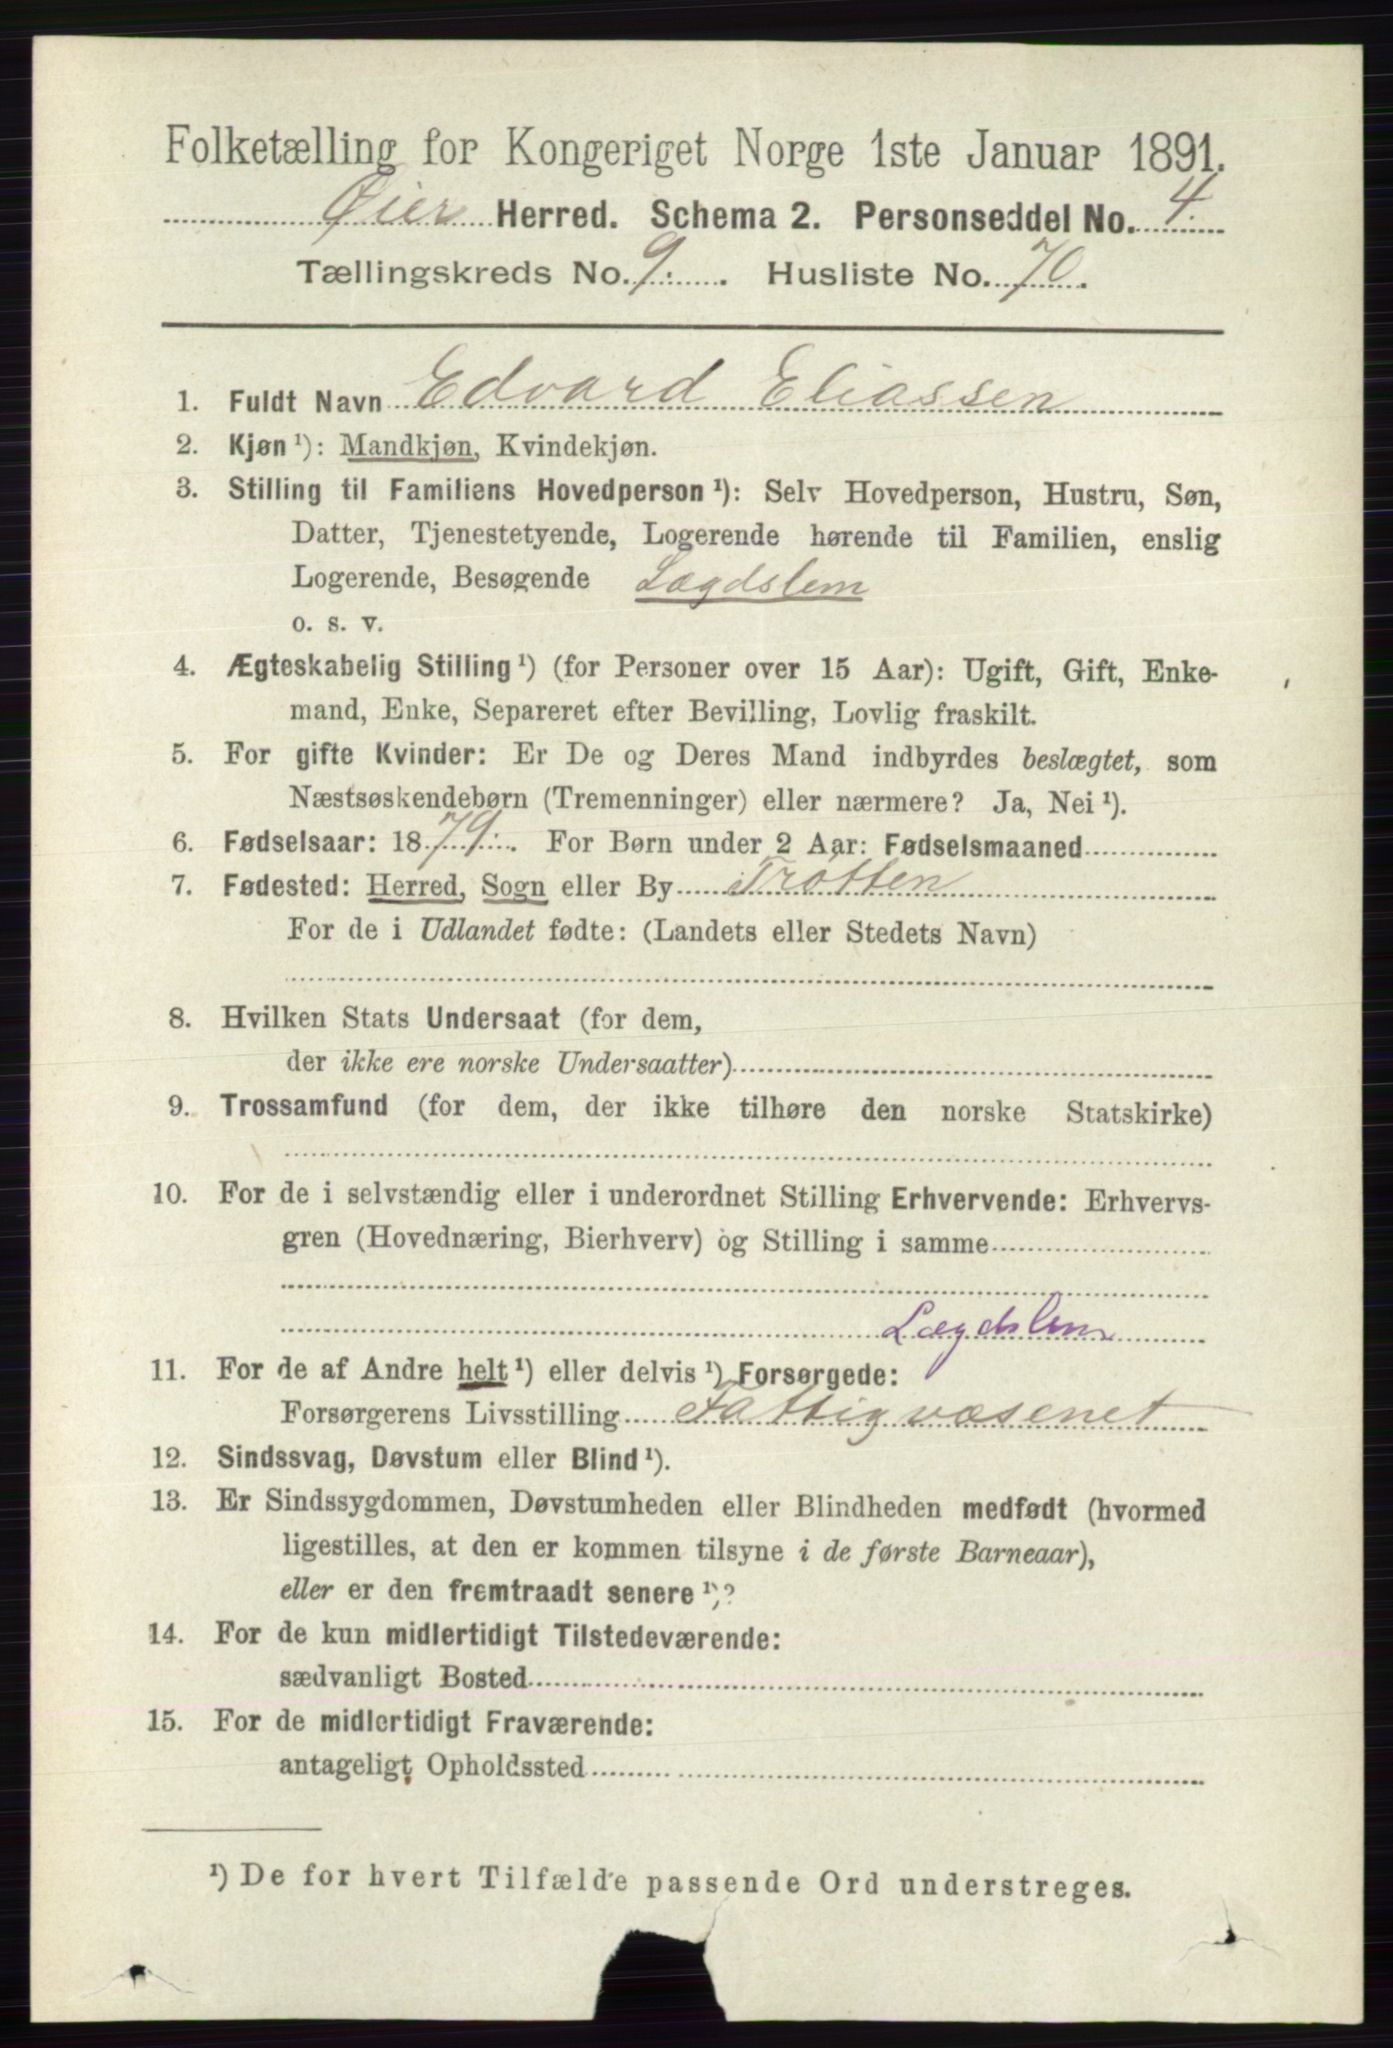 Folketælling for Kongeriget Norge 1ste Januar 1891.
Øier Herred. Schema 2. Personseddel No. 4.
Tællingskreds No. 9. Husliste No. 70.
1. Fuldt Navn Edvard Eliassen
2. Kjøn ¹): Mandkjøn, Kvindekjøn.
3. Stilling til Familiens Hovedperson ¹): Selv Hovedperson, Hustru, Søn,
Datter, Tjenestetyende, Logerende hørende til Familien, enslig
Logerende, Besøgende Lægdslem
o. s. v.
4. Ægteskabelig Stilling ¹) (for Personer over 15 Aar): Ugift, Gift, Enke-
mand, Enke, Separeret efter Bevilling, Lovlig fraskilt.
5. For gifte Kvinder: Er De og Deres Mand indbyrdes beslægtet, som
Næstsøskendebørn (Tremenninger) eller nærmere? Ja, Nei ¹).
6. Fødselsaar: 1879. For Børn under 2 Aar: Fødselsmaaned
7. Fødested: Herred, Sogn eller By Trøtten
For de i Udlandet fødte: (Landets eller Stedets Navn)
8. Hvilken Stats Undersaat (for dem,
der ikke ere norske Undersaatter)
9. Trossamfund (for dem, der ikke tilhøre den norske Statskirke)
10. For de i selvstændig eller i underordnet Stilling Erhvervende: Erhvervs-
gren (Hovednæring, Bierhverv) og Stilling i samme
Lægdslem
11. For de af Andre helt ¹) eller delvis ¹) Forsørgede:
Forsørgerens Livsstilling Fattigvæsenet
12. Sindssvag, Døvstum eller Blind ¹).
13. Er Sindssygdommen, Døvstumheden eller Blindheden medfødt (hvormed
ligestilles, at den er kommen tilsyne i de første Barneaar),
eller er den fremtraadt senere ¹)?
14. For de kun midlertidigt Tilstedeværende:
sædvanligt Bosted
15. For de midlertidigt Fraværende:
antageligt Opholdssted
¹) De for hvert Tilfælde passende Ord understreges.